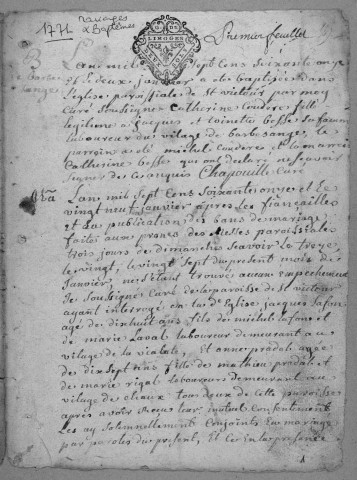 1771 mariages
& Baptêmes
LIMOGES
Premier feuillet
B
Lan mil Sept Cens Soixante onze
et le deux janvier a été baptisée dans
l'église paroissiale de St victour par moy
Curé Soussigné Catherine Coudere fille
légitime a jacques et toinette Besse Sa femme
laboureur du village de barbesange, le
parrein a été michel Coudere et la marrein
Catherine besse qui ont declaré ne scavoir
Signer de ce enquis Chapouille Curé
Lan mil Sept Cens Soixante onze et le
vingt neuf janvier apres les fiançailles
et la publication des bans de mariage
faite aux prones des Messes paroissiale
trois jours de dimanche Scavoir le treze
le vingt, le vingt Sept du present mois de
janvier, ne S'etant trouvé aucun empechement
je Soussigné Curé de la paroisse de St victour
ayant interrogé en la de Eglise jacques Lafon
agé de dixhuit ans fils de michel lafon et
de marie Laval laboureur demeurant au
vilage de la vialate, et anne pradal agée
de dix Sept ans fille de mathieu pradal et
de marie rigal laboureurs demeurant au
vilage de claux tous deux de cette paroisse
après avoir Receu leur mutuel Consentement
Les ay Solemnellement Conjoints En mariage
par paroles du present, Et ce en la presence
1